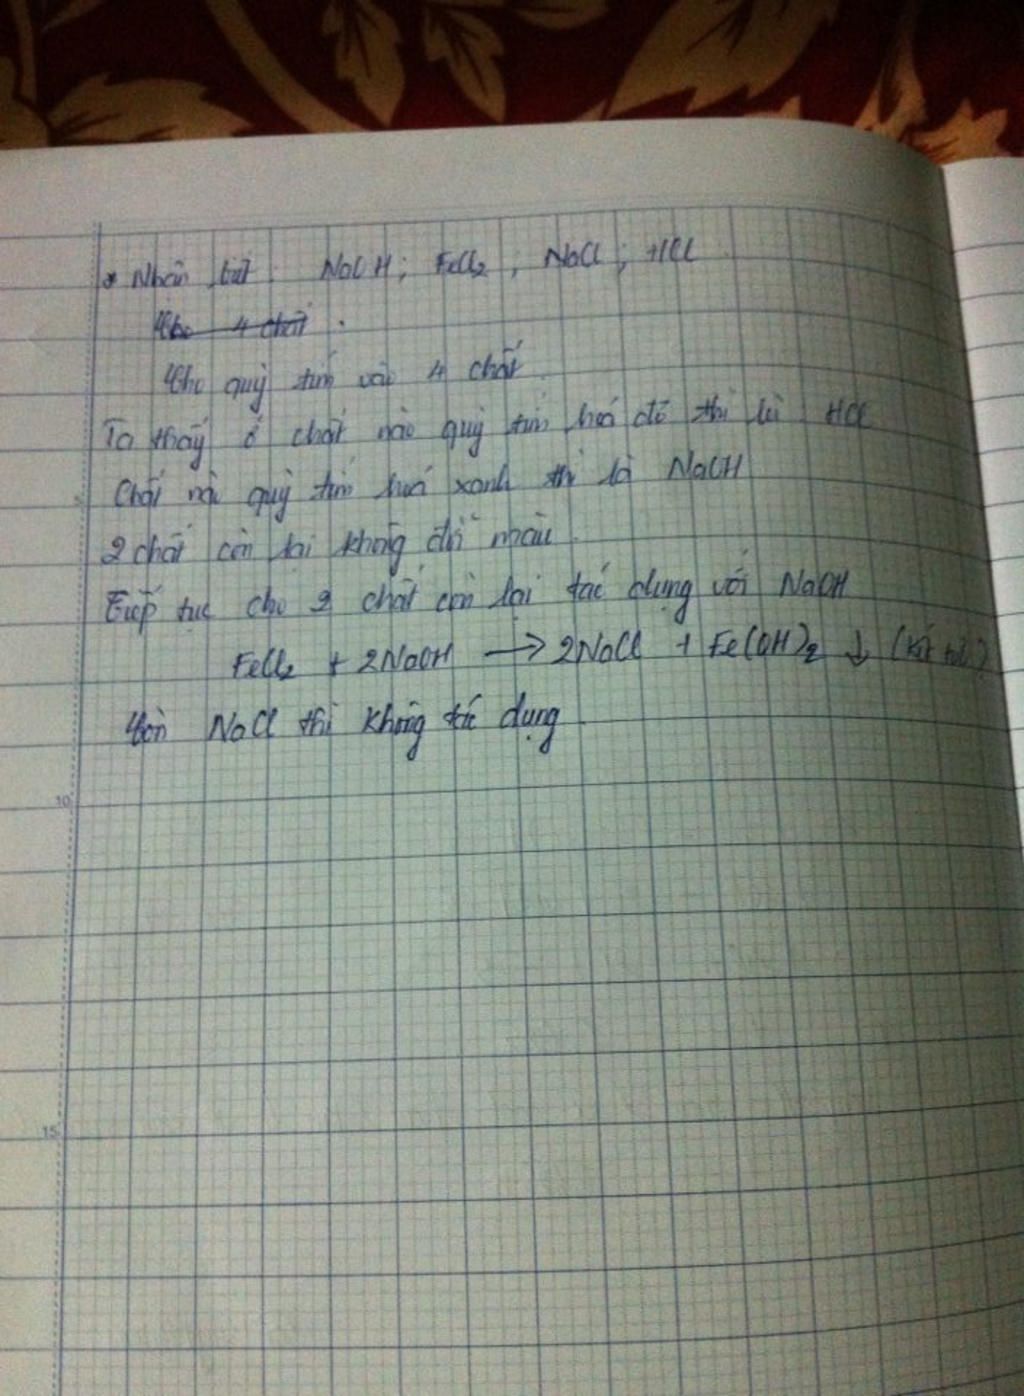 * Nhận biết: NaOH; FeCl2; NaCl; HCl
Cho 4 chất.
Cho quỳ tím vào 4 chất.
Ta thấy ở chất nào quỳ tím hoá đỏ thì là HCl
Chất nào quỳ tím hoá xanh thì là NaOH
2 chất còn lại không đổi màu.
Tiếp tục cho 2 chất còn lại tác dụng với NaOH
FeCl2 + 2NaOH → 2NaCl + Fe(OH)2 ↓ (kết tủa)
Còn NaCl thì không tác dụng
5
10
15